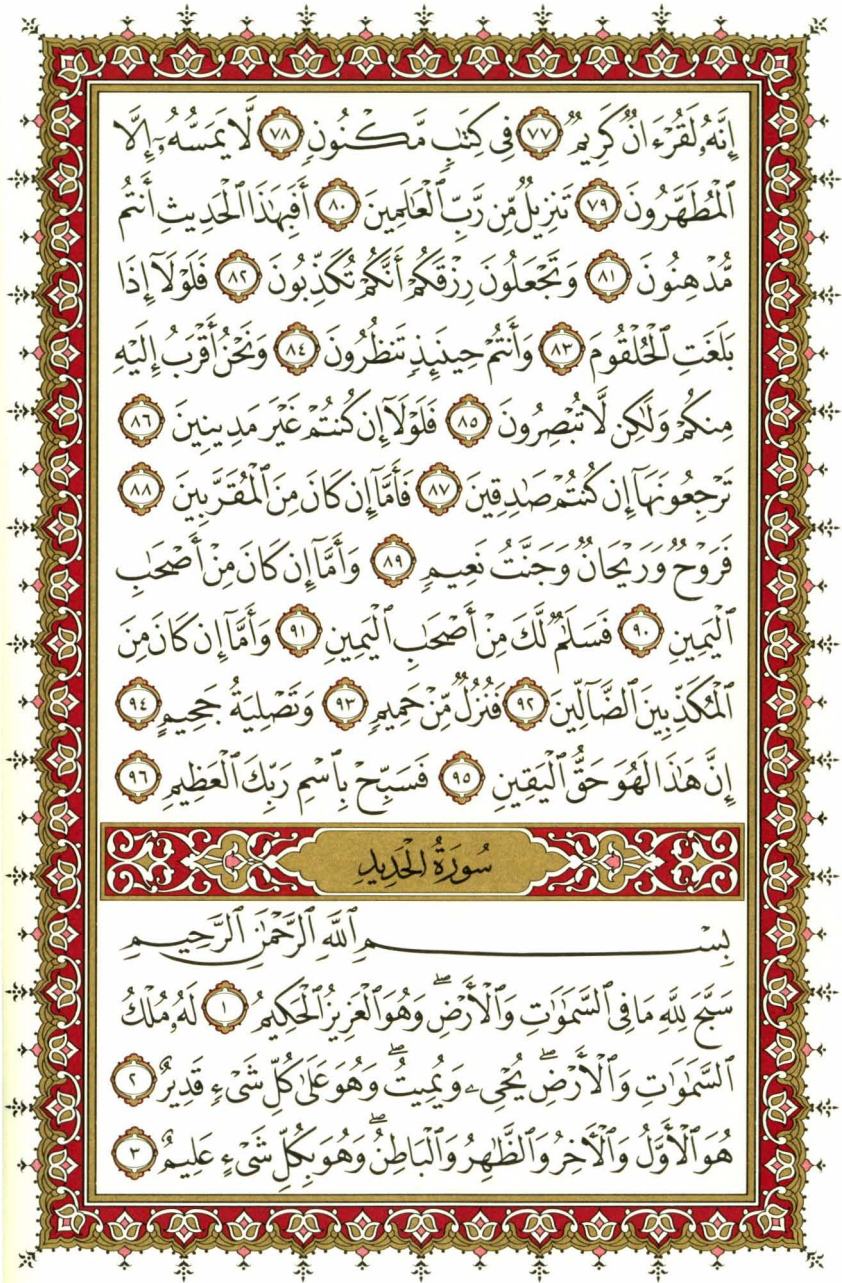 إِنَّهُۥ لَقُرْءَانٌ كَرِيمٌ ٧٧ فِى كِتَٰبٍ مَّكْنُونٍ ٧٨ لَّا يَمَسُّهُۥٓ إِلَّا
ٱلْمُطَهَّرُونَ ٧٩ تَنزِيلٌ مِّن رَّبِّ ٱلْعَٰلَمِينَ ٨٠ أَفَبِهَٰذَا ٱلْحَدِيثِ أَنتُم
مُّدْهِنُونَ ٨١ وَتَجْعَلُونَ رِزْقَكُمْ أَنَّكُمْ تُكَذِّبُونَ ٨٢ فَلَوْلَآ إِذَا
بَلَغَتِ ٱلْحُلْقُومَ ٨٣ وَأَنتُمْ حِينَئِذٍ تَنظُرُونَ ٨٤ وَنَحْنُ أَقْرَبُ إِلَيْهِ
مِنكُمْ وَلَٰكِن لَّا تُبْصِرُونَ ٨٥ فَلَوْلَآ إِن كُنتُمْ غَيْرَ مَدِينِينَ ٨٦
تَرْجِعُونَهَآ إِن كُنتُمْ صَٰدِقِينَ ٨٧ فَأَمَّآ إِن كَانَ مِنَ ٱلْمُقَرَّبِينَ ٨٨
فَرَوْحٌ وَرَيْحَانٌ وَجَنَّتُ نَعِيمٍ ٨٩ وَأَمَّآ إِن كَانَ مِنْ أَصْحَٰبِ
ٱلْيَمِينِ ٩٠ فَسَلَٰمٌ لَّكَ مِنْ أَصْحَٰبِ ٱلْيَمِينِ ٩١ وَأَمَّآ إِن كَانَ مِنَ
ٱلْمُكَذِّبِينَ ٱلضَّآلِّينَ ٩٢ فَنُزُلٌ مِّنْ حَمِيمٍ ٩٣ وَتَصْلِيَةُ جَحِيمٍ ٩٤
إِنَّ هَٰذَا لَهُوَ حَقُّ ٱلْيَقِينِ ٩٥ فَسَبِّحْ بِٱسْمِ رَبِّكَ ٱلْعَظِيمِ ٩٦
سُورَةُ الْحَدِيدِ
بِسْمِ ٱللَّهِ ٱلرَّحْمَٰنِ ٱلرَّحِيمِ
سَبَّحَ لِلَّهِ مَا فِى ٱلسَّمَٰوَٰتِ وَٱلْأَرْضِ ۖ وَهُوَ ٱلْعَزِيزُ ٱلْحَكِيمُ ١ لَهُۥ مُلْكُ
ٱلسَّمَٰوَٰتِ وَٱلْأَرْضِ ۖ يُحْىِۦ وَيُمِيتُ ۖ وَهُوَ عَلَىٰ كُلِّ شَىْءٍ قَدِيرٌ ٢
هُوَ ٱلْأَوَّلُ وَٱلْءَاخِرُ وَٱلظَّٰهِرُ وَٱلْبَاطِنُ ۖ وَهُوَ بِكُلِّ شَىْءٍ عَلِيمٌ ٣